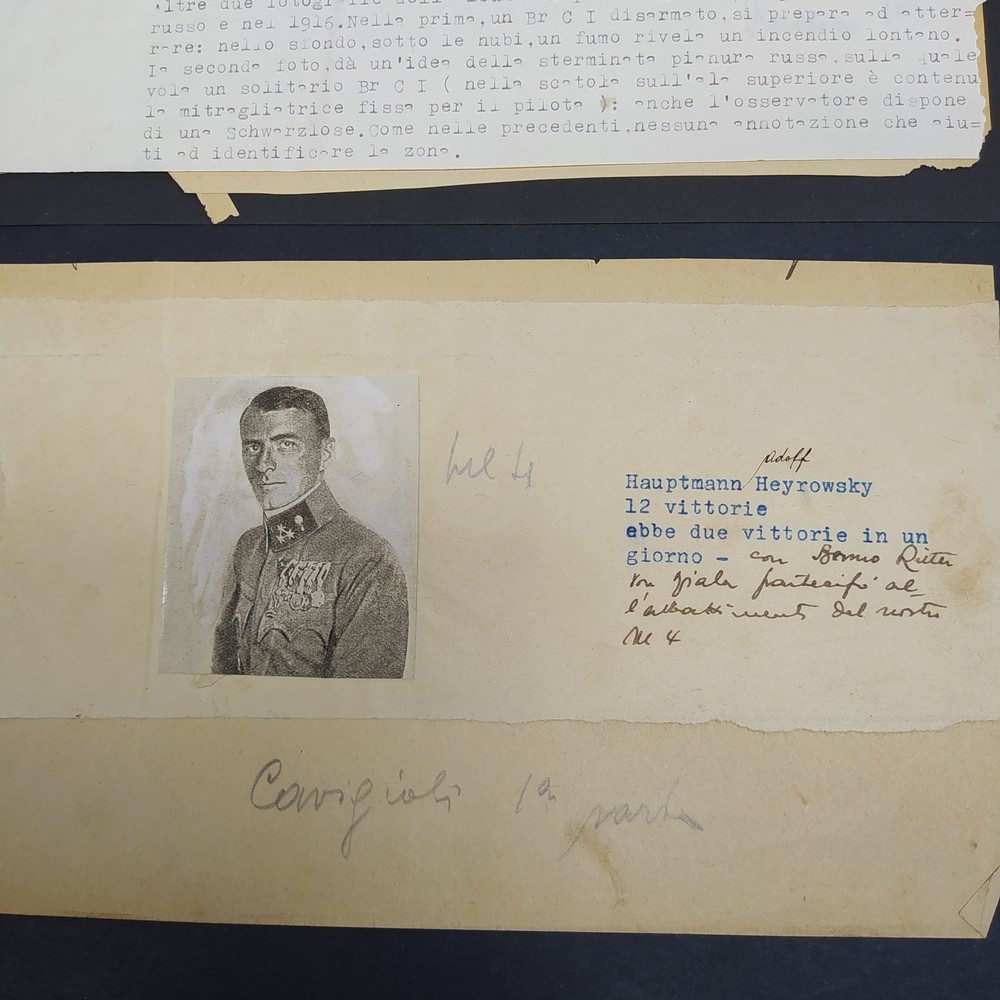 altre due fotografie dell'
russo e nel 1916.Nella prima,un Br C I disarmato,si prepara ad atter=
rare: nello sfondo,sotto le nubi,un fumo rivela un incendio lontano.
La seconda foto,dà un'idea della sterminata pianura russa,sulla quale
vola un solitario Br C I ( nella scatola sull'ala superiore è contenu
la mitragliatrice fissa per il pilota ): anche l'osservatore dispone
di una Schwarzlose.Come nelle precedenti,nessuna annotazione che aiu=
ti ad identificare la zona.
adolf
Hauptmann Heyrowsky
12 vittorie
ebbe due vittorie in un
giorno – con Benno Ritter
von Fiala partecipò al-
l'abbattimento del nostro
M 4
Cavigioli 1a parte